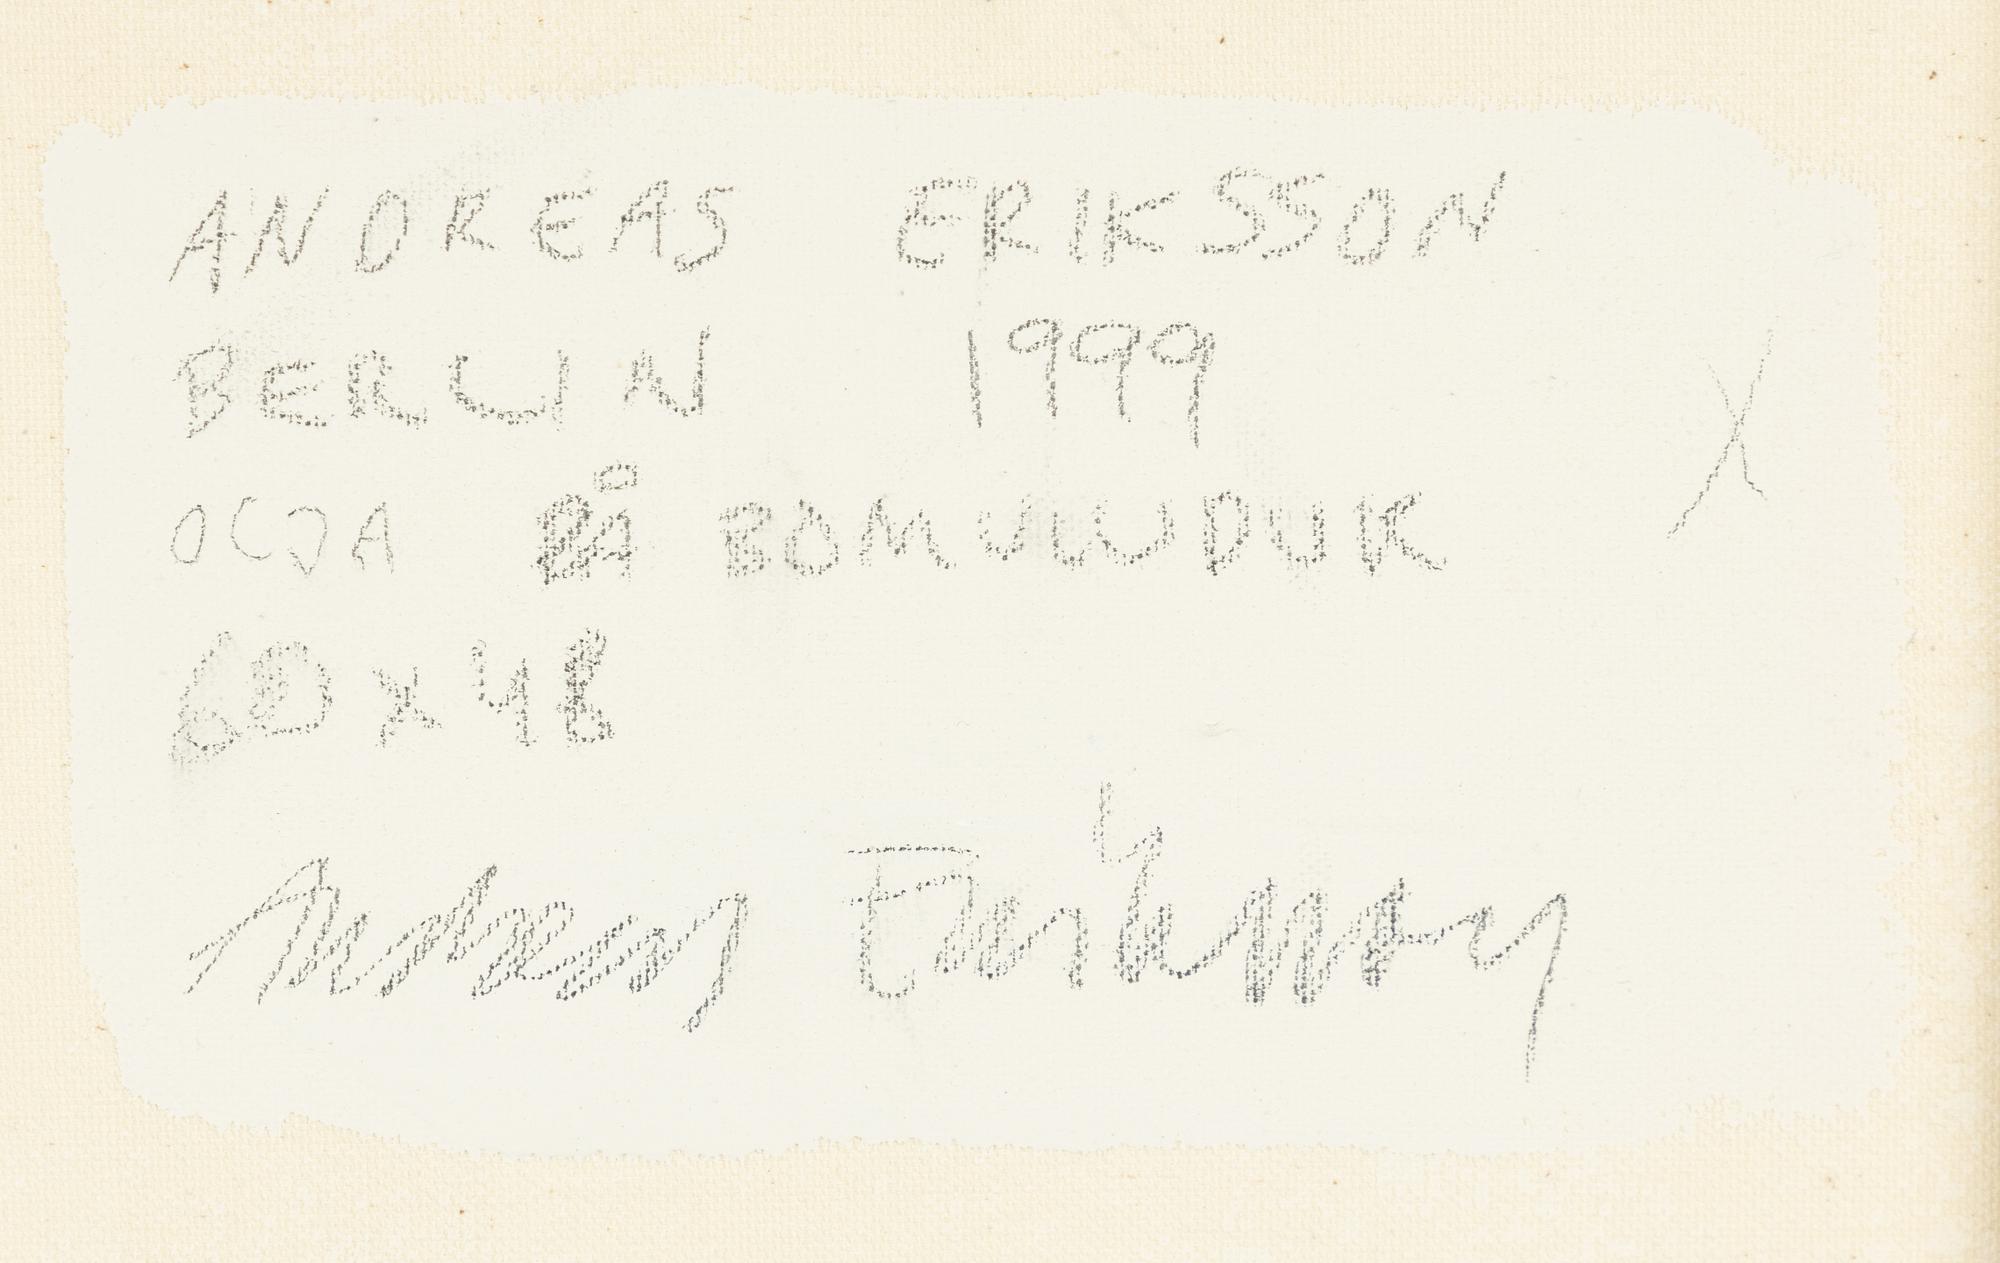 ANDREAS ERIKSSON
BERLIN 1999
OLJA PÅ BOMULLSDUK
60 x 48
Andreas Eriksson
X